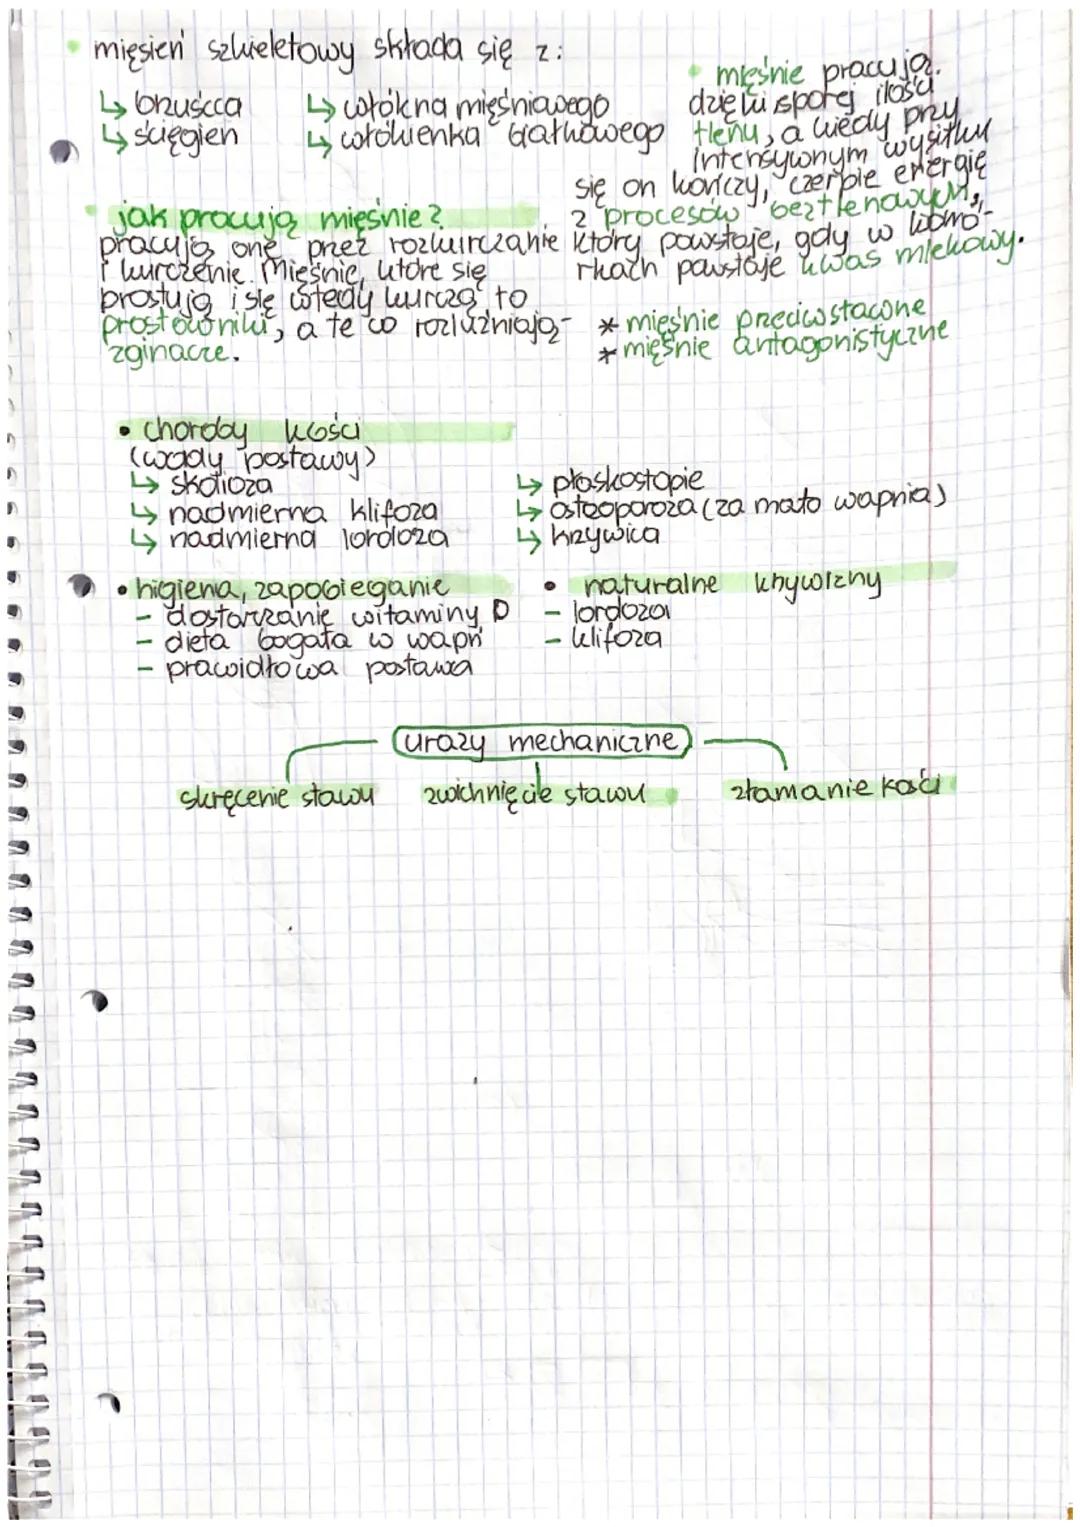 mięsień szkieletowy składa się z:
↳ brzuśćca
↳ ścięgien
↳ włókna mięśniowego
↳ włókienka białkowego
mięśnie pracują
dzięki sporej ilości
tlenu, a kiedy przy
intensywnym wysiłku
się on kończy, czerpie energię
z procesów beztlenowych,
który powstaje, gdy w komó-
rkach powstaje kwas mlekowy.
jak pracują mięśnie?
pracują one przez rozkurczanie
i kurczenie. Mięśnie, które się
prostują i się wtedy kurczą to
prostowniki, a te co rozluźniają-
zginacze.
* mięśnie przeciwstawne
* mięśnie antagonistyczne
• choroby kości
(wady postawy)
↳ skolioza
↳ nadmierna klifoza
↳ nadmierna lordoza
↳ płaskostopie
↳ osteoporoza (za mało wapnia)
↳ krzywica
• higiena, zapobieganie
- dostarczanie witaminy D
- dieta bogata w wapń
- prawidłowa postawa
• naturalne krzywizny
- lordoza
- klifoza
urazy mechaniczne
skręcenie stawu
zwichnięcie stawu
złamanie kości